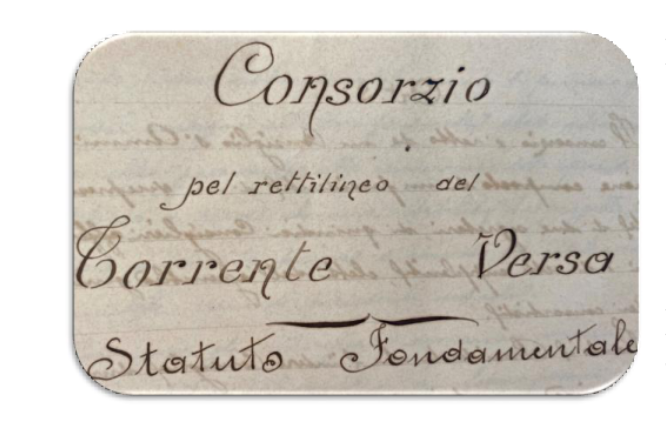 Consorzio
pel rettilineo del
Torrente Versa
Statuto Fondamentale